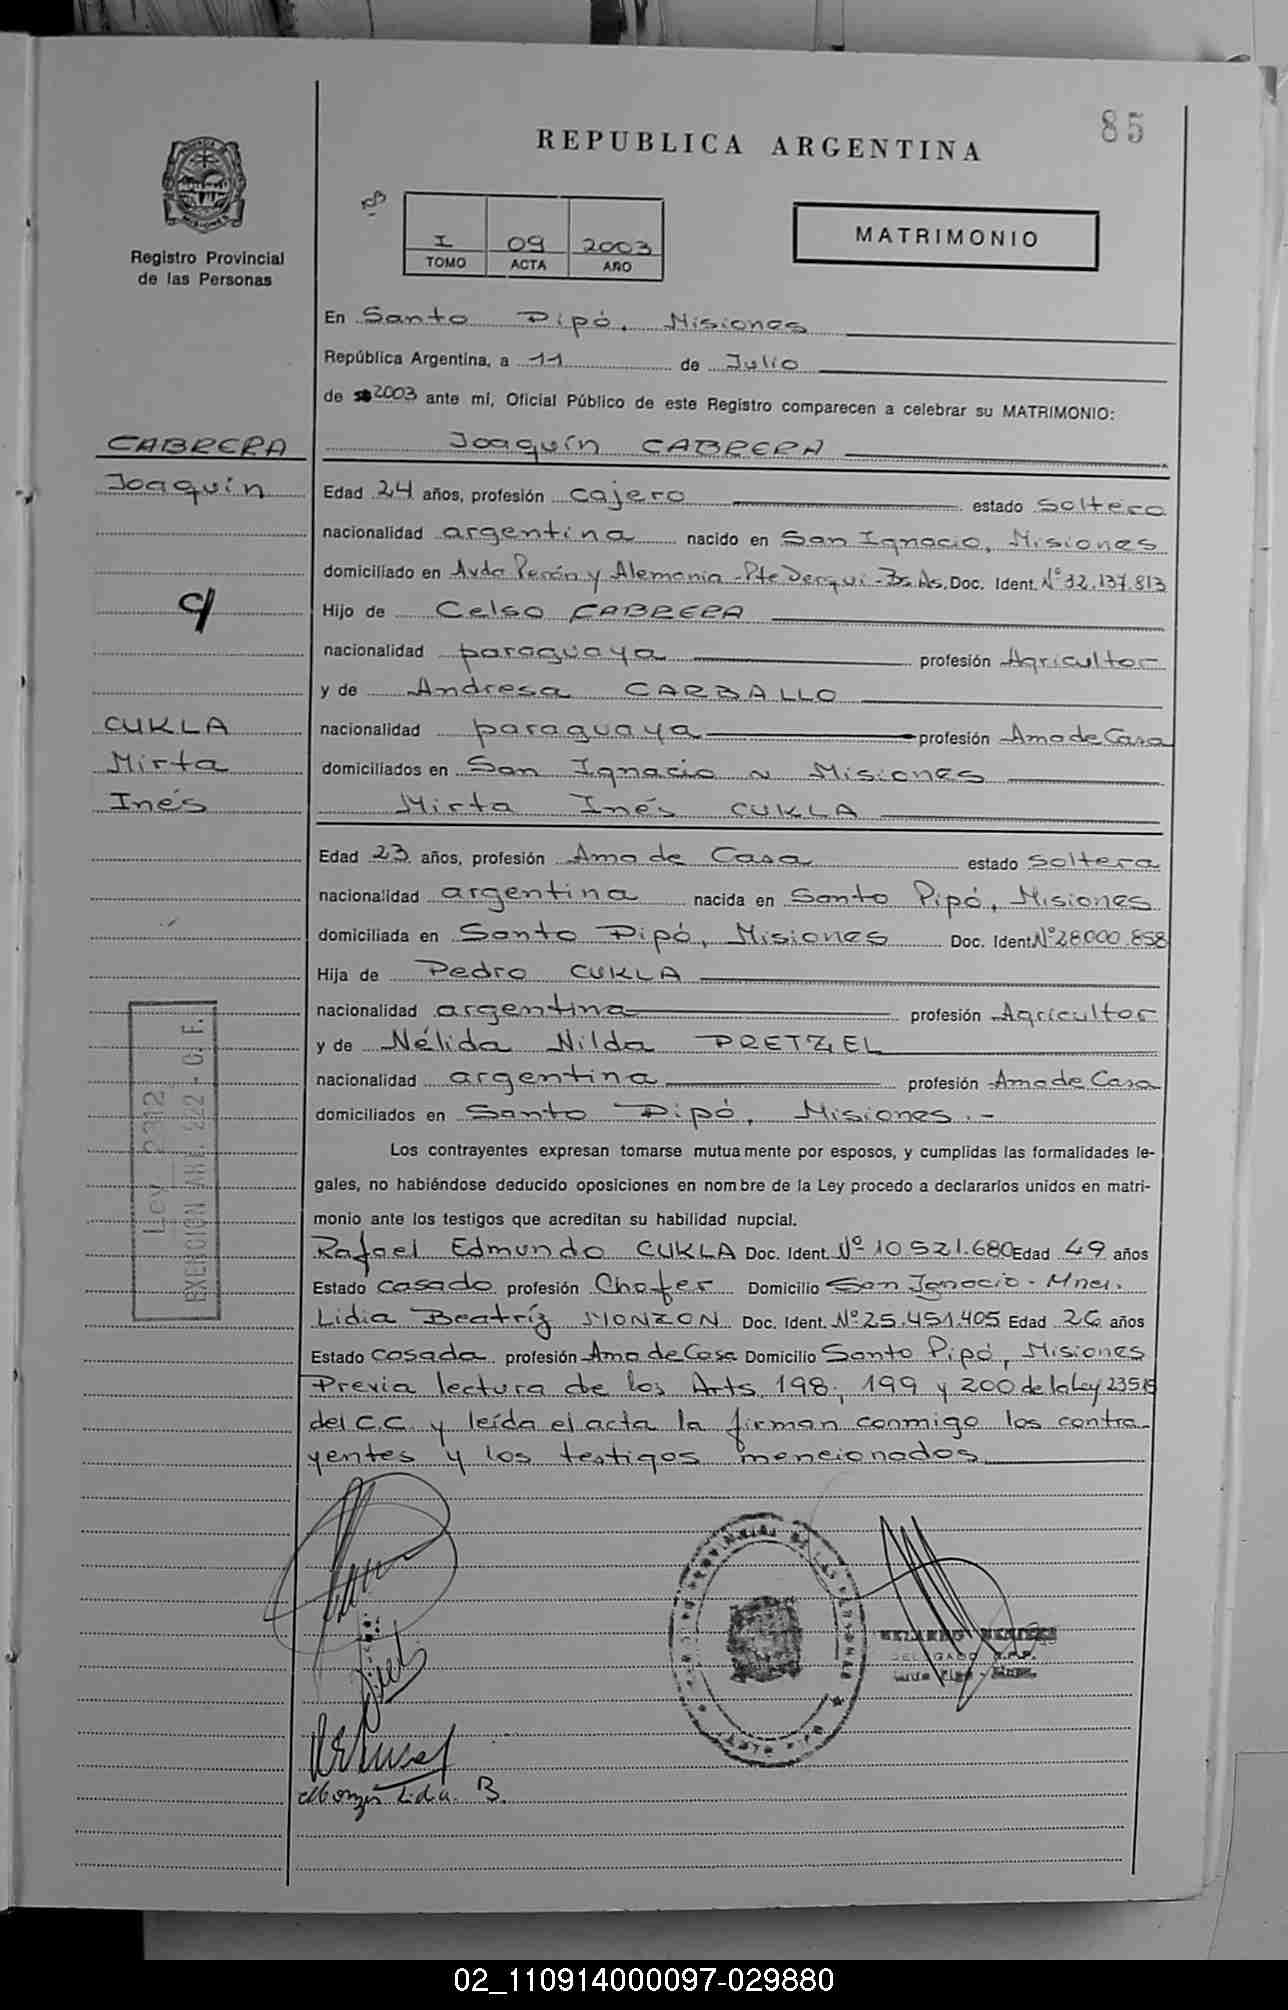 85
REPUBLICA ARGENTINA
MATRIMONIO
I 09 2003
TOMO ACTA AÑO
Registro Provincial
de las Personas
En Santo Pipó, Misiones
República Argentina, a 11 de Julio
de 2003 ante mí, Oficial Público de este Registro comparecen a celebrar su MATRIMONIO:
CABRERA Joaquín CABRERA
Joaquín Edad 24 años, profesión cajero estado soltero
nacionalidad argentina nacido en San Ignacio, Misiones
domiciliado en Avda Perón y Alemania - Pte Derqui - Bs. As. Doc. Ident. Nº 32.137.813
c/ Hijo de Celso CABRERA
nacionalidad paraguaya profesión Agricultor
y de Andresa CARBALLO
CUKLA nacionalidad paraguaya profesión Ama de Casa
Mirta domiciliados en San Ignacio ~ Misiones
Inés Mirta Inés CUKLA
Edad 23 años, profesión Ama de Casa estado soltera
nacionalidad argentina nacida en Santo Pipó, Misiones
domiciliada en Santo Pipó, Misiones Doc. Ident. Nº 28000.858
Hija de Pedro CUKLA
nacionalidad argentina profesión Agricultor
y de Nélida Nilda PRETZEL
nacionalidad argentina profesión Ama de Casa
domiciliados en Santo Pipó, Misiones.-
Ley 2312
EXENCION ART. 222 - C. F.
Los contrayentes expresan tomarse mutuamente por esposos, y cumplidas las formalidades le-
gales, no habiéndose deducido oposiciones en nombre de la Ley procedo a declararlos unidos en matri-
monio ante los testigos que acreditan su habilidad nupcial.
Rafael Edmundo CUKLA Doc. Ident. Nº 10521.680 Edad 49 años
Estado casado profesión Chofer Domicilio San Ignacio - Mnes.
Lidia Beatríz MONZON Doc. Ident. Nº 25.451.405 Edad 26 años
Estado casada profesión Ama de Casa Domicilio Santo Pipó, Misiones
Previa lectura de los Arts. 198, 199 y 200 de la Ley 23515
del C.C. y leída el acta la firman conmigo los contra
yentes y los testigos mencionados
DELEGADO
Monzón Lidia. B.
02_110914000097-029880